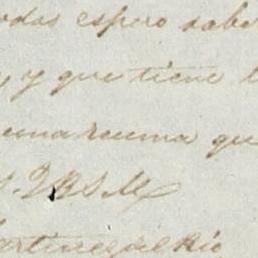 odas espero sabe
y que tiene
una reuma qu
Q B S M
Martinez del Rio